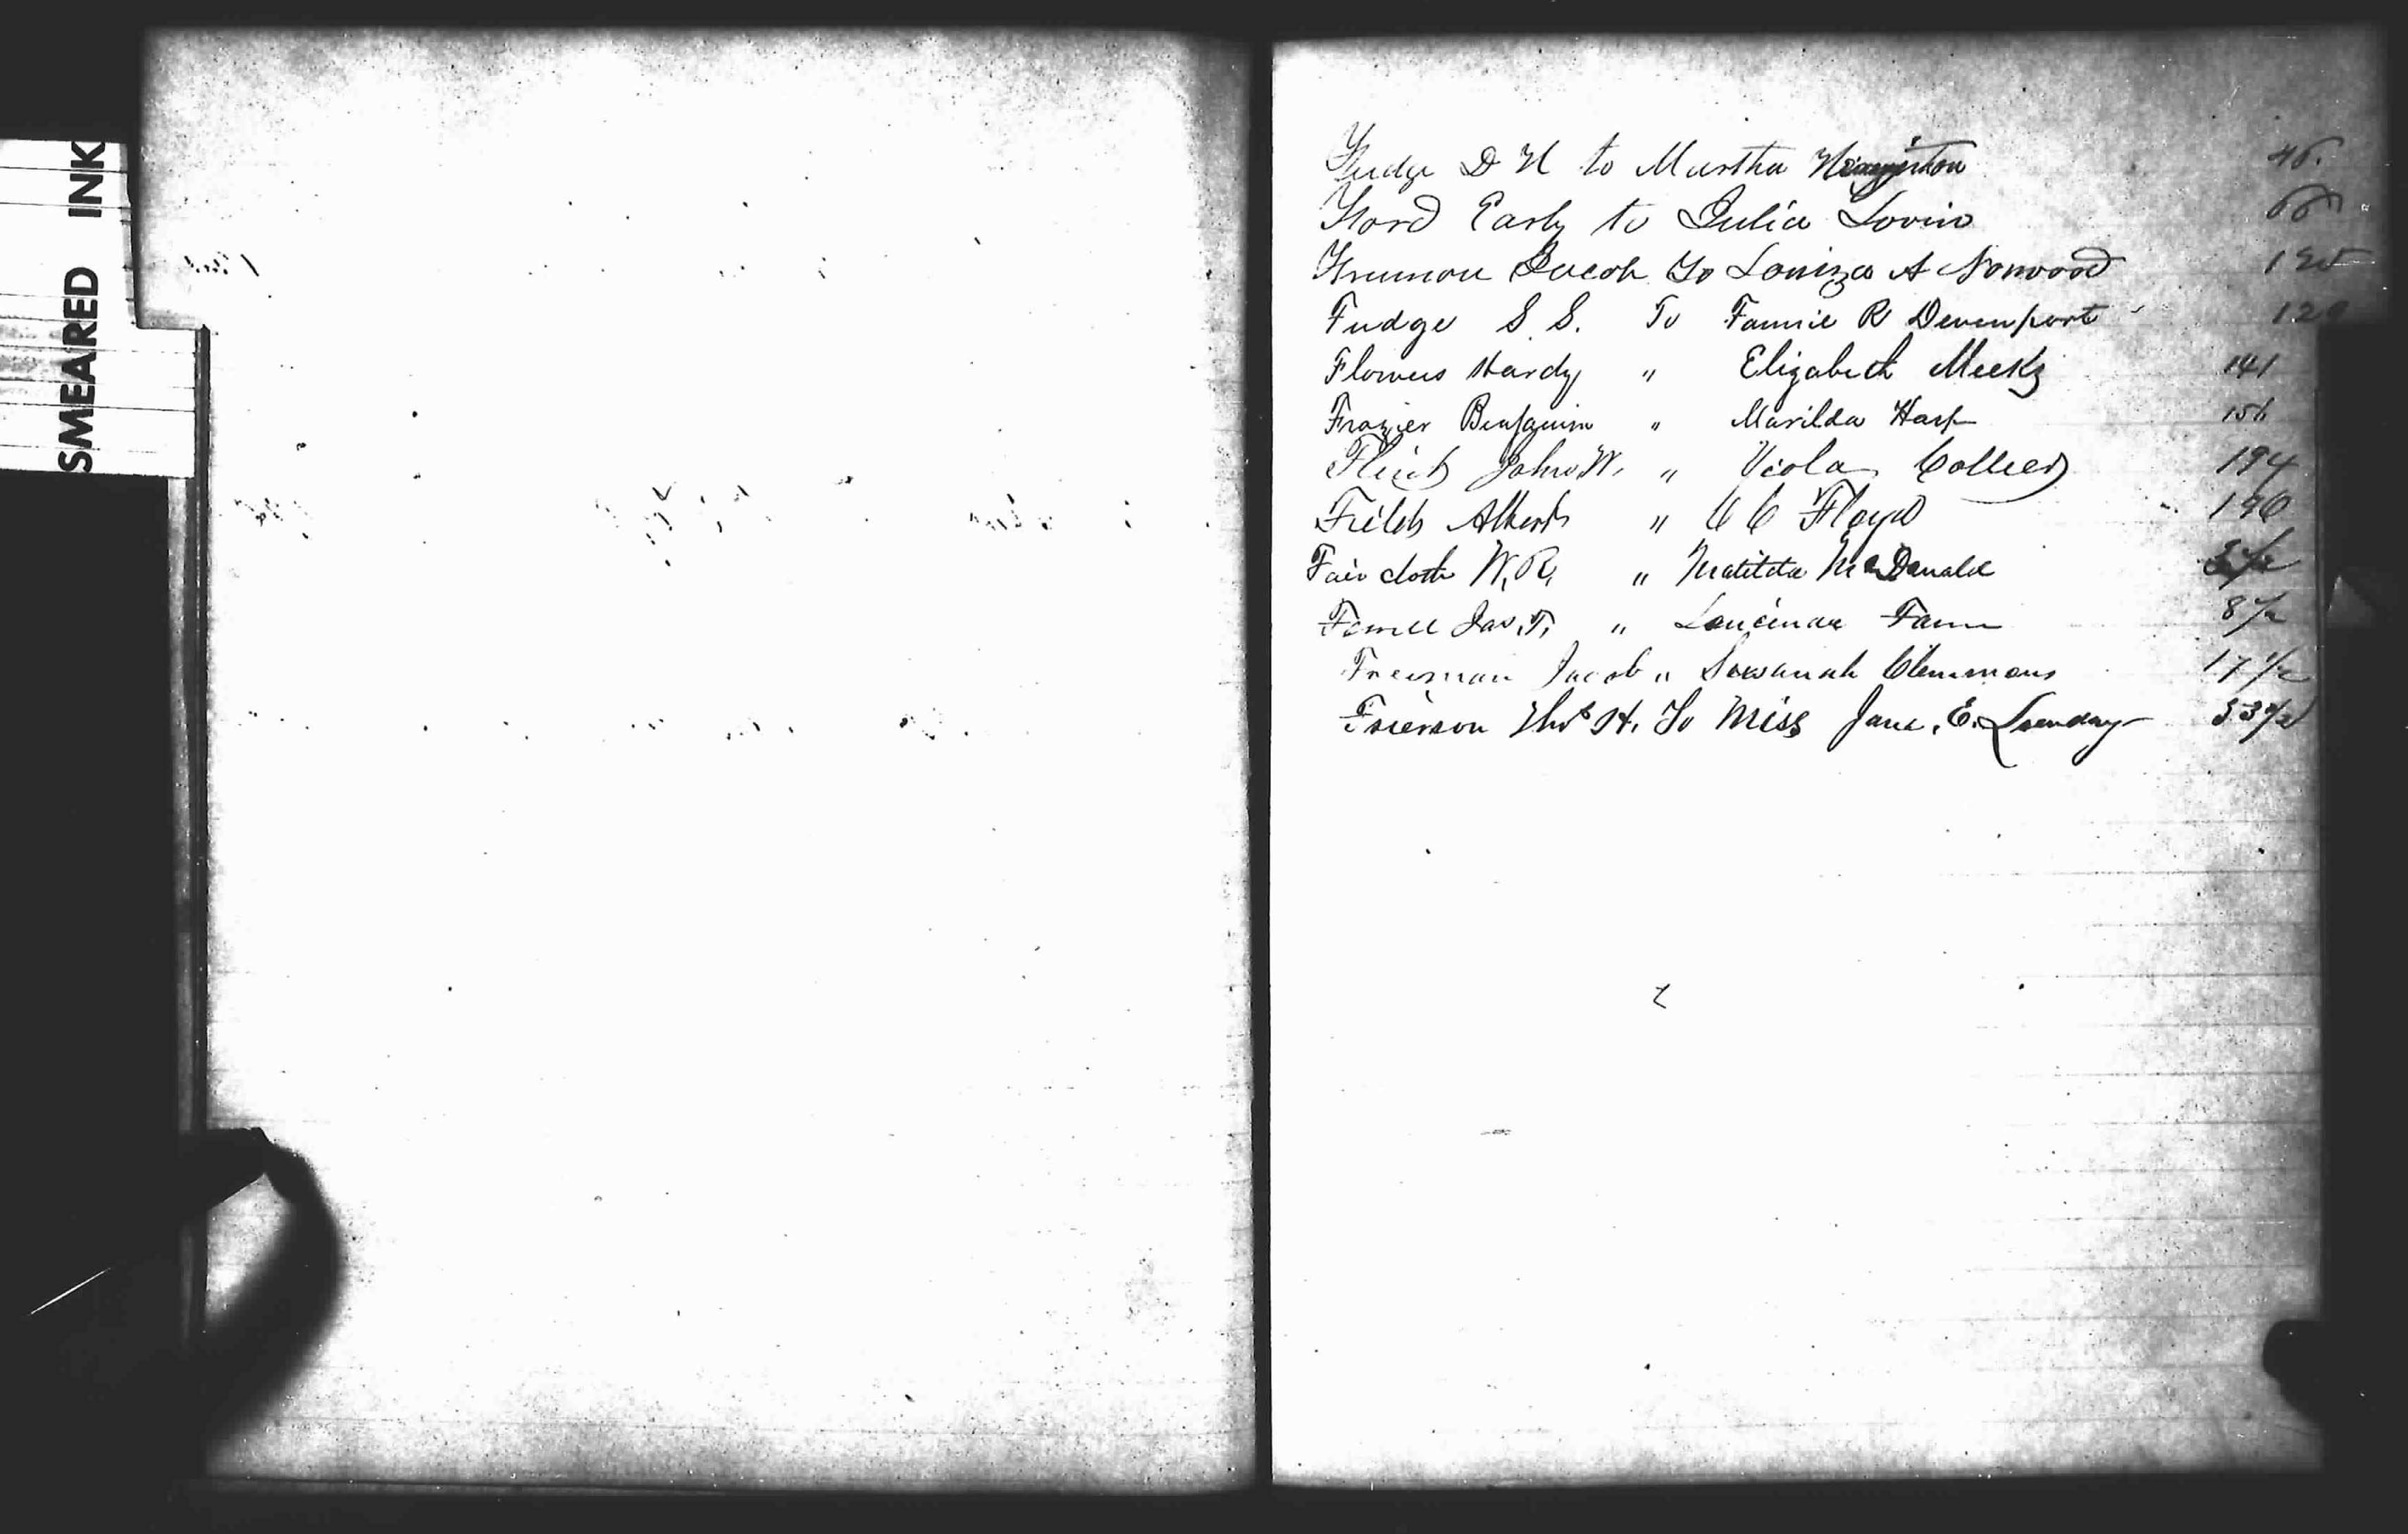 SMEARED INK
Fudge D H to Martha 46.
Ford Early to Julia Lovin 66
Freeman Jacob To Louiza A Norwood 125
Fudge S S. To Fannie R Devenport 12
Flowers Hardy " Elizabeth Meeks 141
Frazier Benjamin " Marilda Harp 156
John W. " Viola Collier 194
Fields Albert " C C Floyd 196
Fair cloth W. R. " Matilda McDonald
Jas. T. " 8 1/2
Freeman Jacob " Susanah Clemmons 17 1/2
Frierson Thos H. To Miss Jane. E. 33 1/2